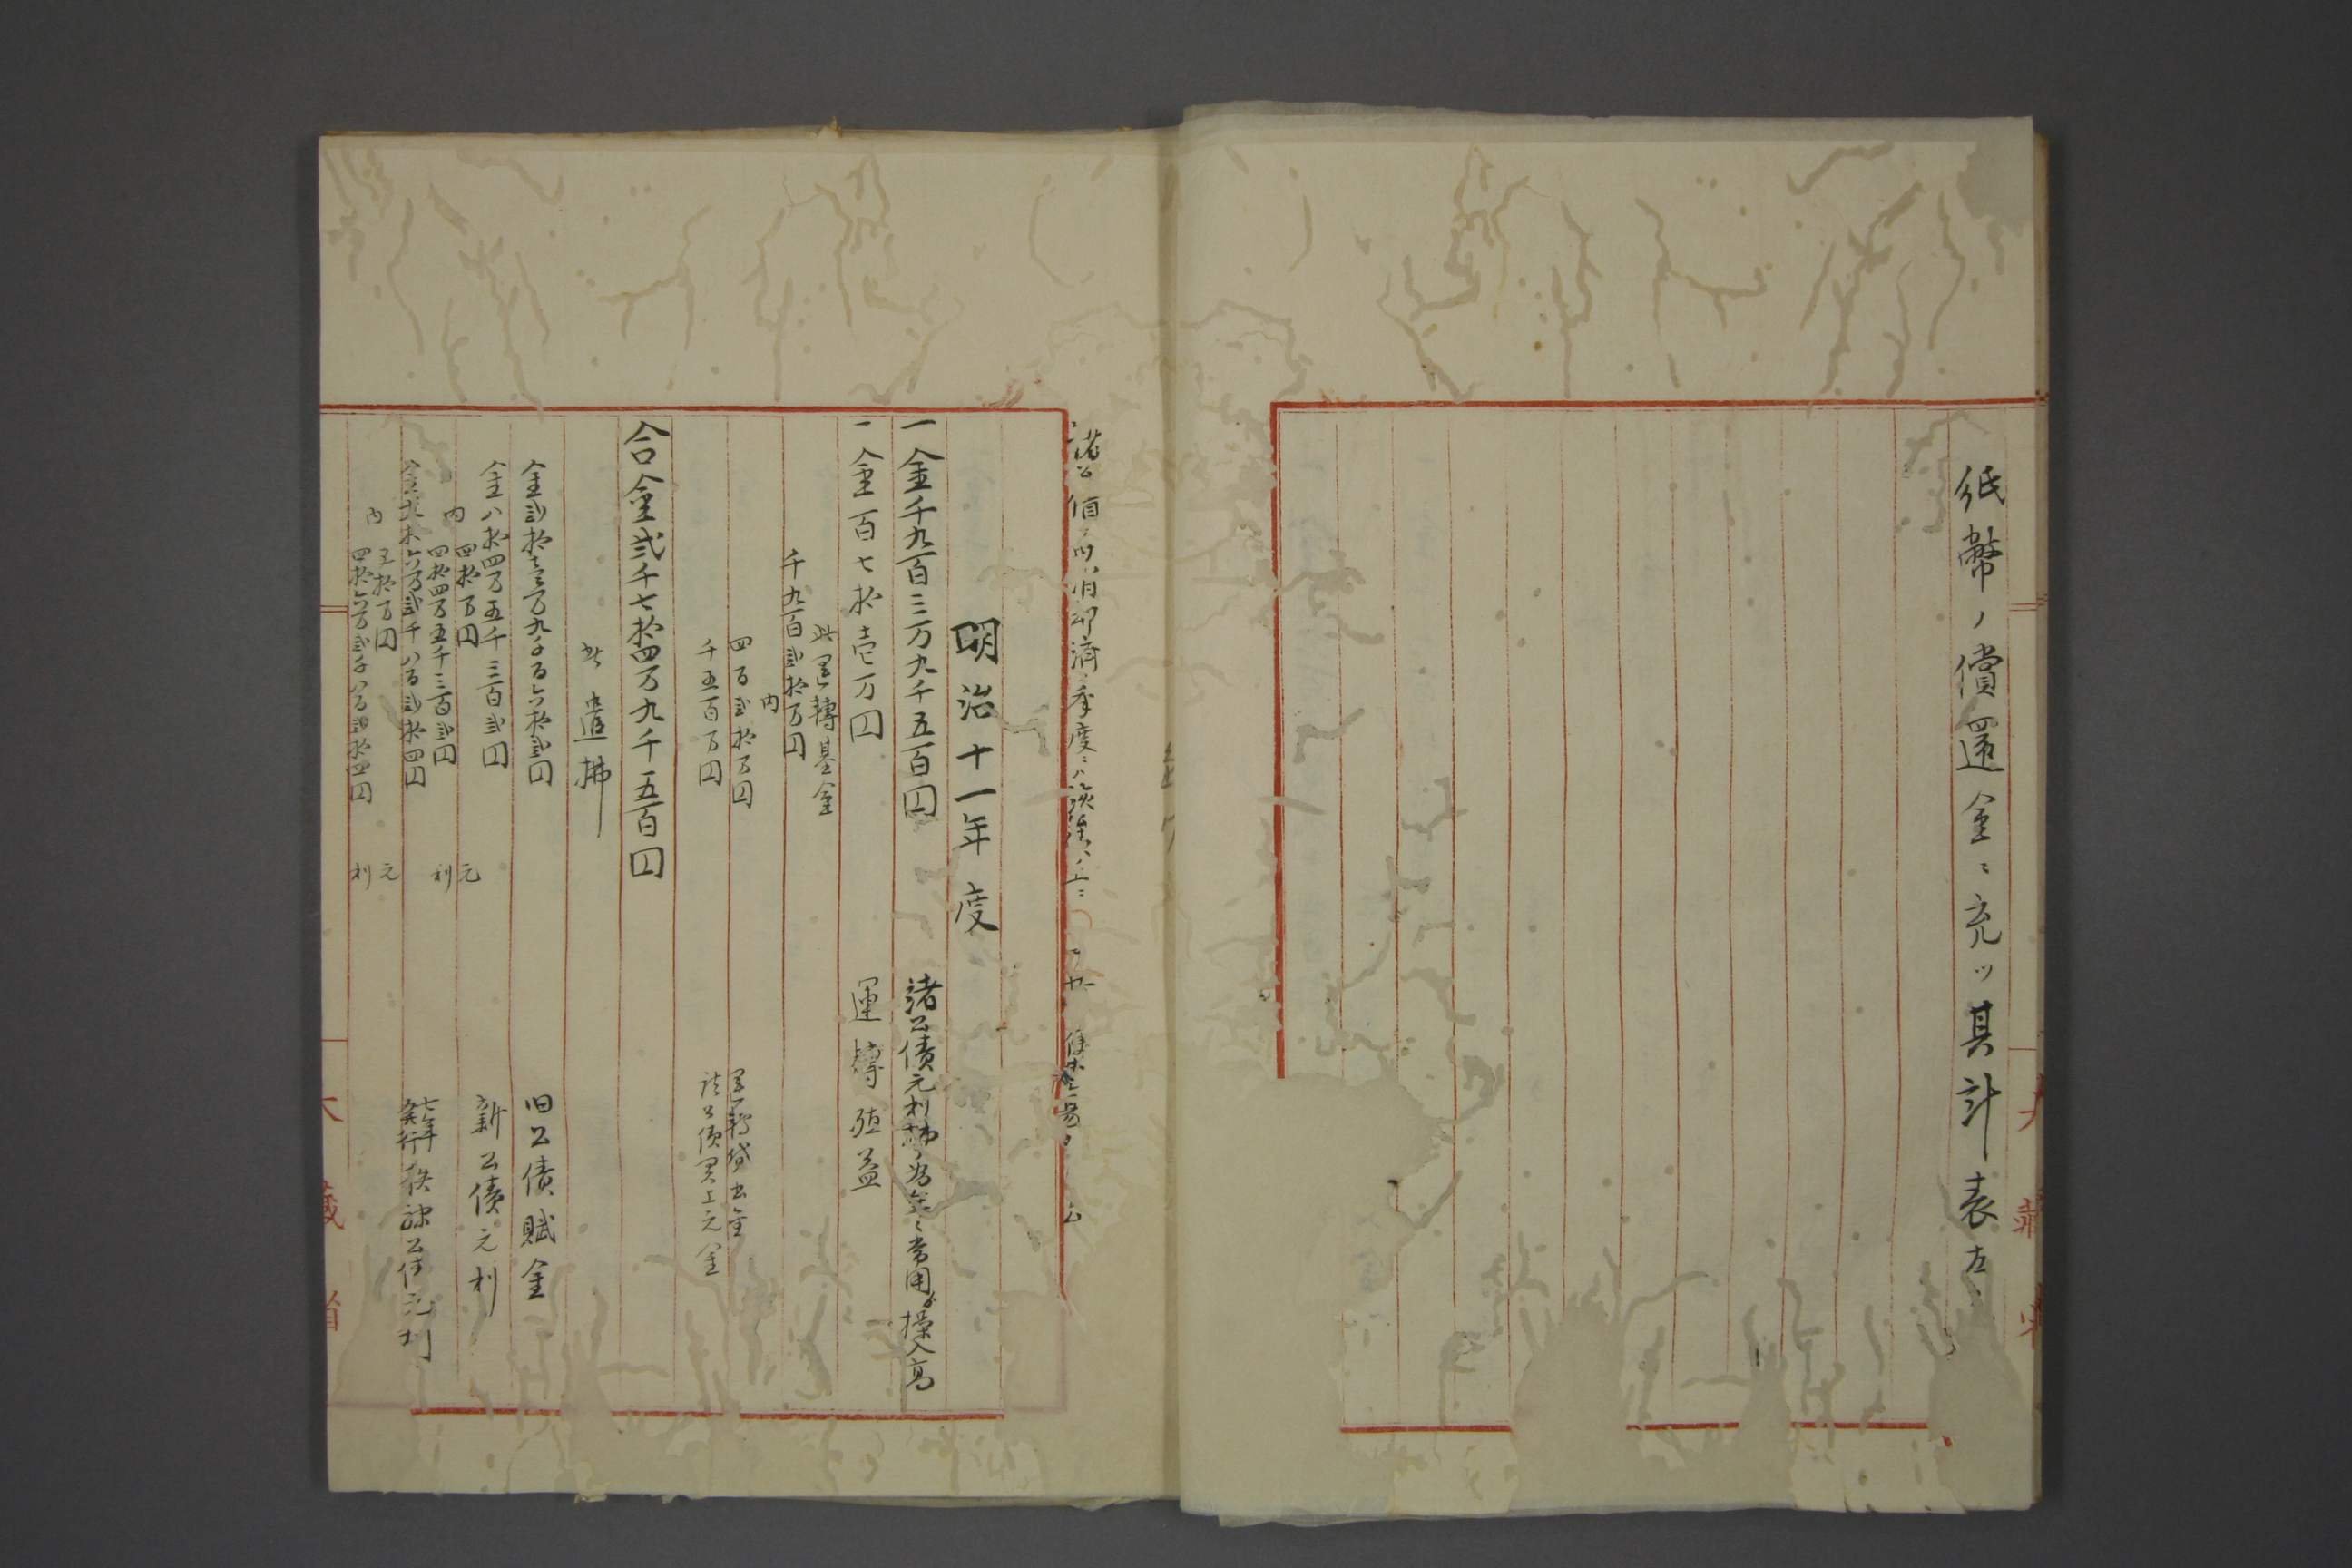 紙幣ノ償還金ニ充ツ其計表左
明治十一年度
一金千九百三万九千五百円
諸公債元利払ノ為金ニ常用ヨリ操入高
一金百七拾壱万円
運転殖益
此運轉基金
千九百弐拾万円
内
四百弐拾万円
運転貸出金
千五百万円
諸公債買上元金
合金弐千七拾四万九千五百円
此遣拂
金弐拾壱万九千百六拾弐円
旧公債賦金
金八拾四万五千三百弐円
新公債元利
内
四拾万円
元
四拾四万五千三百弐円
利
金九拾六万弐千八百弐拾四円
七年発行秩禄公債元利
内
五拾万円
元
四拾六万弐千八百弐拾四円
利
大藏省